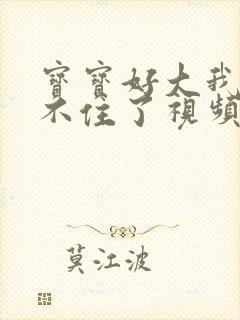 寶寶好大我
不住了視頻
莫江波